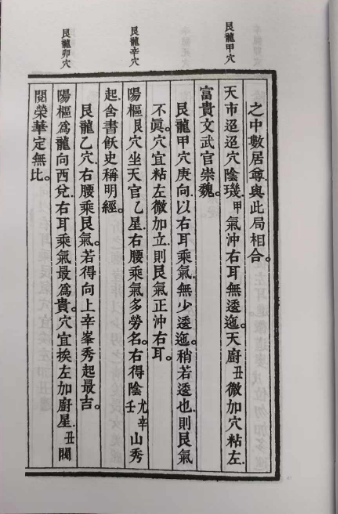 艮龍甲穴
艮龍辛穴
艮龍卯穴
之中數居尊與此局相合。
天市迢迢穴陰璣。甲氣沖右耳無逶迤。天廚丑微加穴粘左
富貴文武官崇巍。
艮龍甲穴庚向以右耳乘氣無少逶迤。稍若逶也則艮氣
不眞。穴宜粘左微加立則艮氣正沖右耳。
陽樞艮穴坐天官乙星右腰乘氣多勞名。右得陰尤辛壬山秀
起舍書飫史稱明經。
艮龍乙穴右腰乘艮氣。若得向上辛峯秀起最吉。
陽樞爲龍向西兌右耳乘氣最爲貴。穴宜挨左加廚星丑閥
閱榮華定無比。